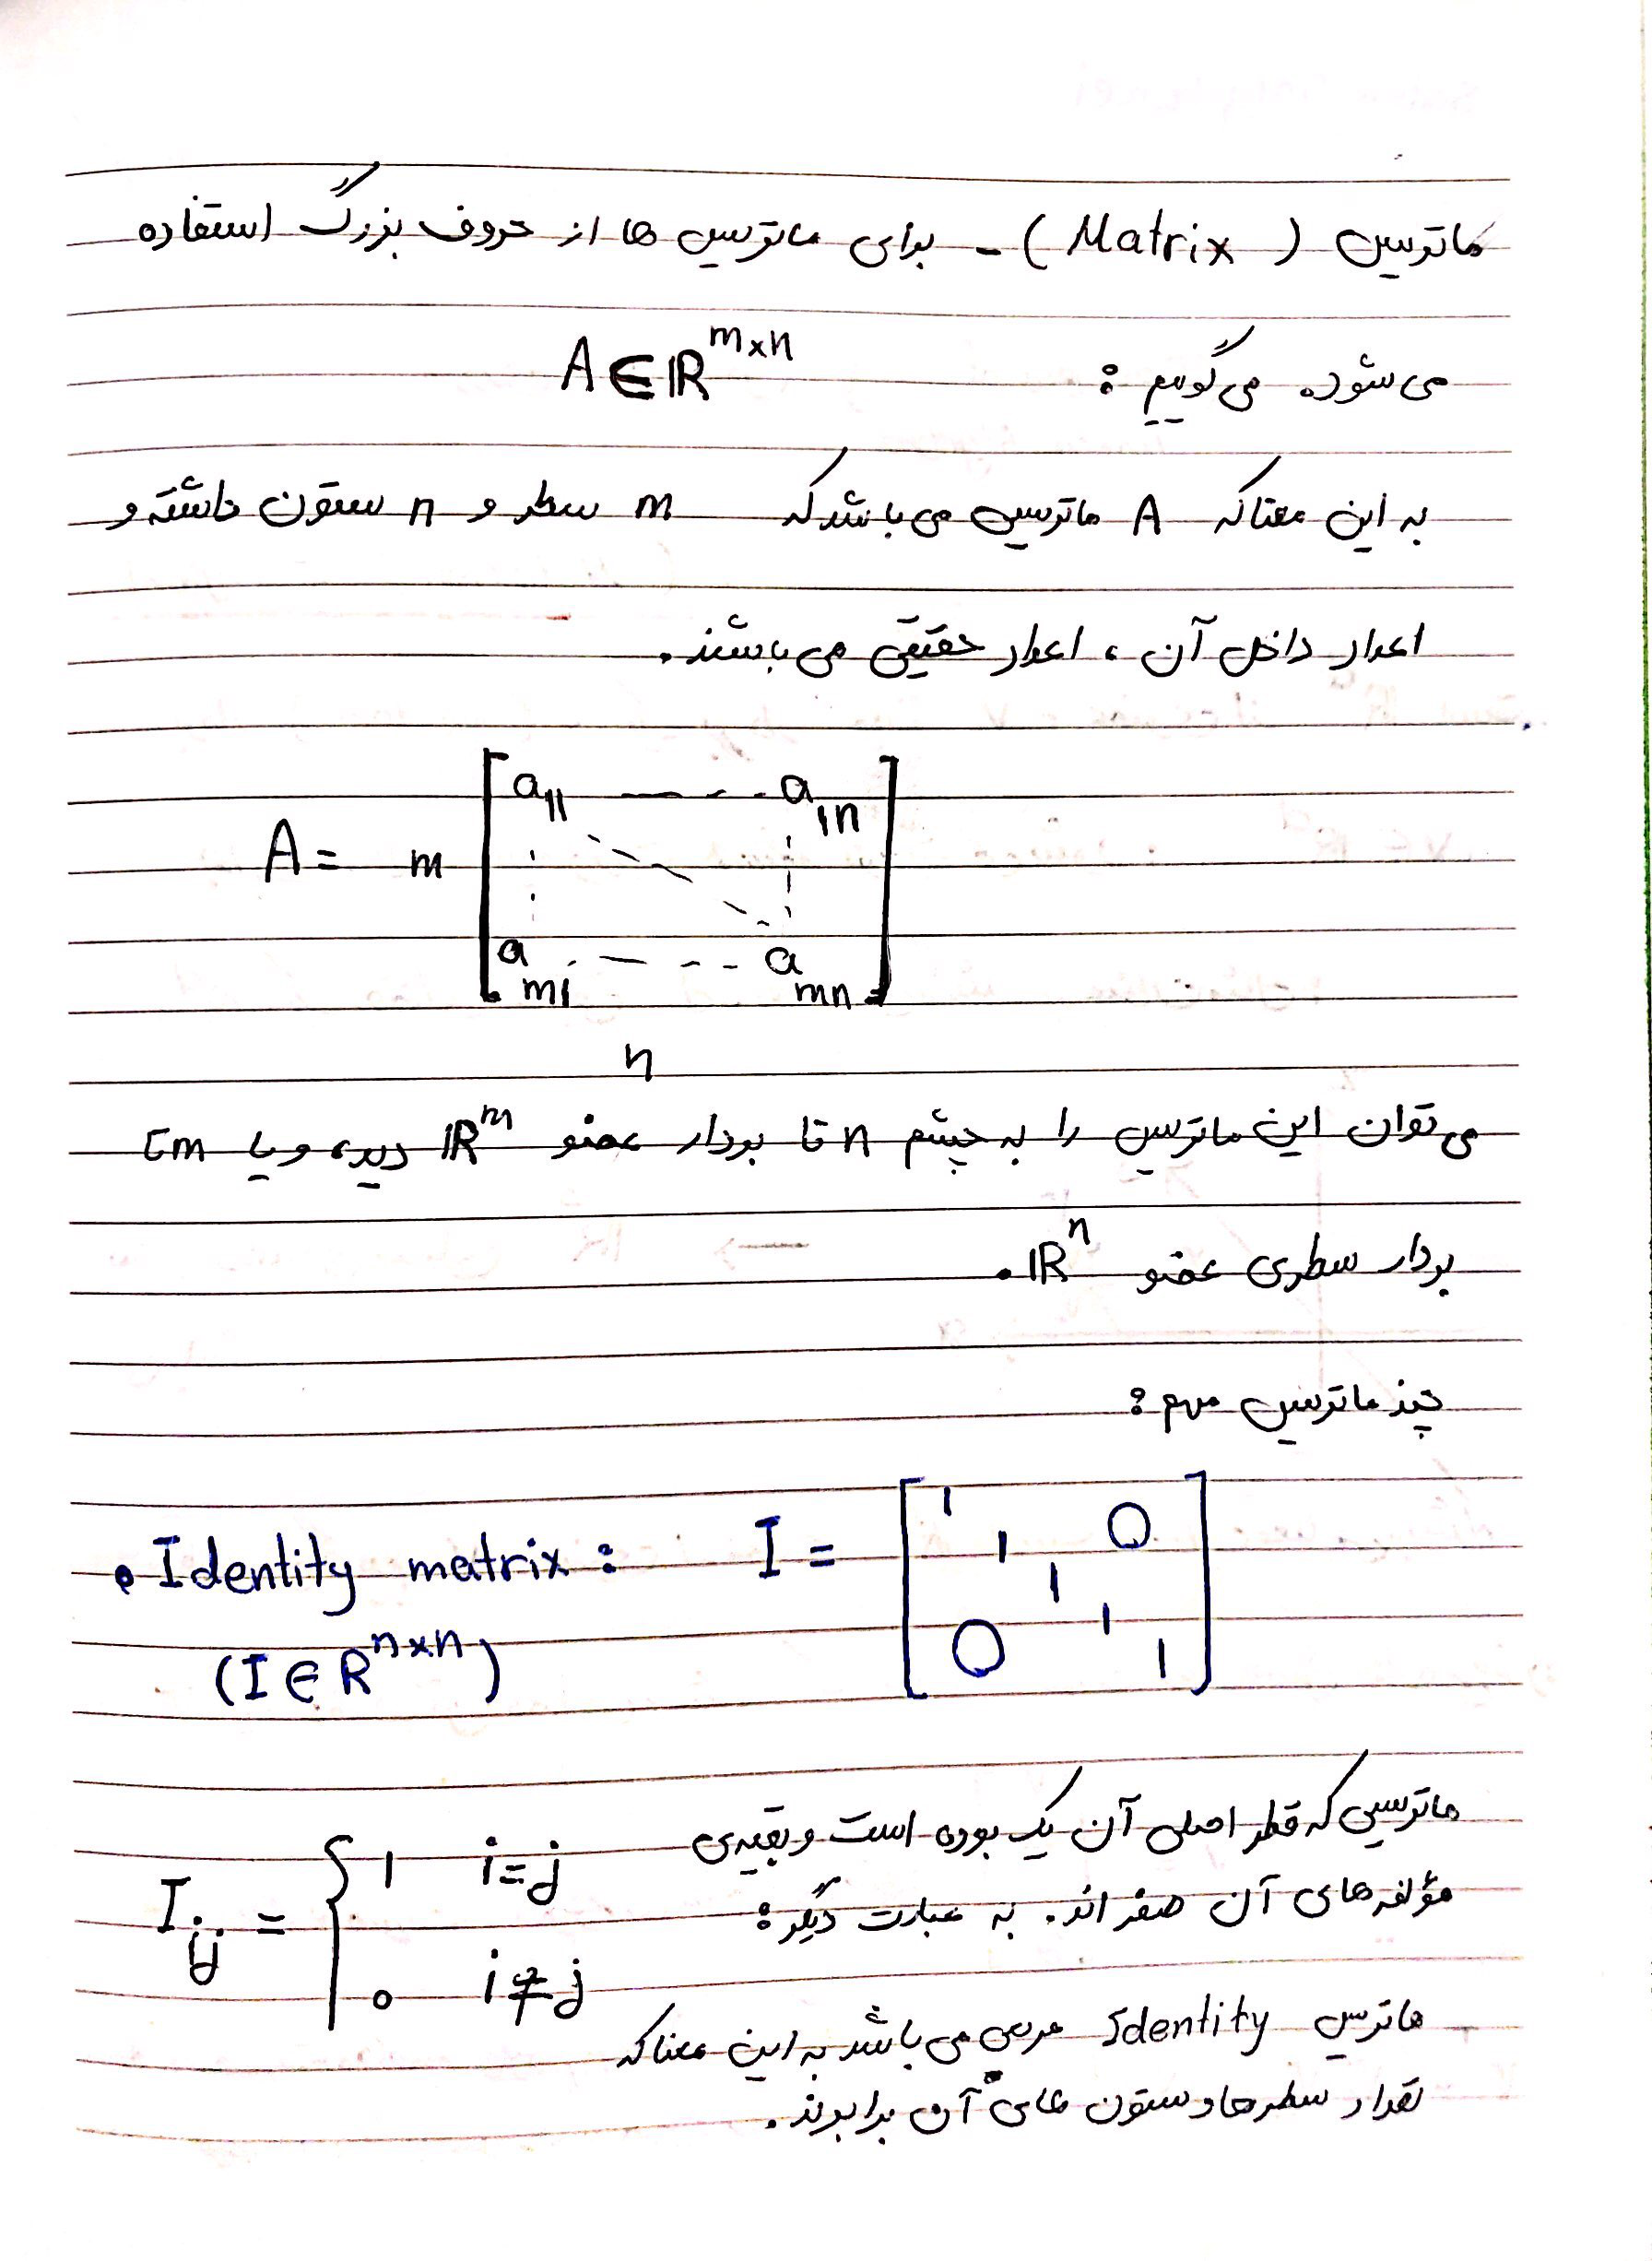 ماتریس (Matrix) - برای ماتریس ها از حروف بزرگ استفاده
می شود. می گوییم : A ∈ ℝ^{m×n}
به این معنا که A ماتریس می باشد که m سطر و n ستون داشته و
اعداد داخل آن ، اعداد حقیقی می باشند.
A = m [ a_{11} --- a_{1n}
a_{m1} --- a_{mn} ]
n
می توان این ماتریس را به چشم n تا بردار عضو ℝ^m دید، و یا m تا
بردار سطری عضو ℝ^n .
چند ماتریس مهم :
• Identity matrix : I = [ 1 1 1 1 1 0 0 ]
(I ∈ R^{n×n})
ماتریسی که قطر اصلی آن یک بوده است و بقیه ی
مؤلفه های آن صفر اند. به عبارت دیگر :
I_{ij} = { 1 i = j
0 i ≠ j
ماتریس Identity مربعی می باشد به این معنا که
تعداد سطرها و ستون های آن برابرند.